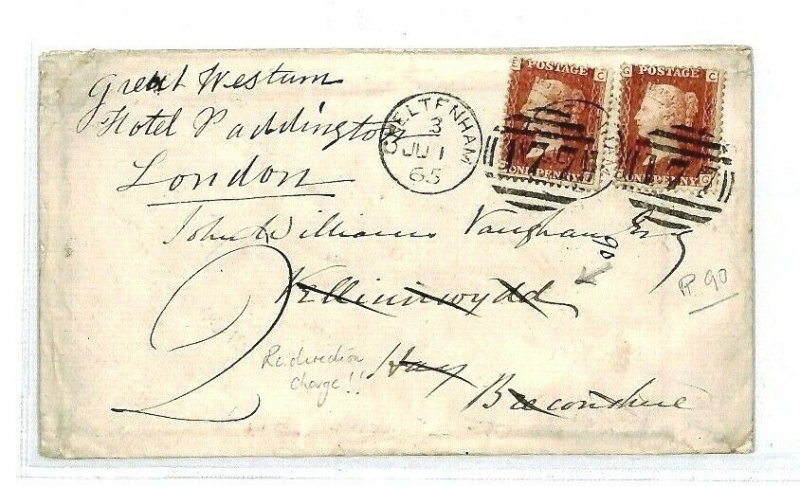 Great Western
Hotel Paddington
London
CHELTENHAM
3
JU 1
65
E C
POSTAGE
ONE PENNY
G C
POSTAGE
ONE PENNY
C G
John Williams Vaughan Esq
90
Velinnwydd
Pl 90
2
Redirection
charge!!
Hay
Breconshire